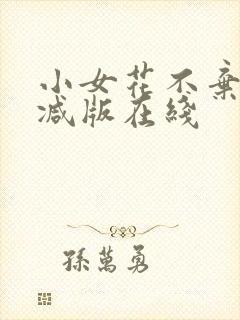 小女花不棄
减版在綫
孫萬勇